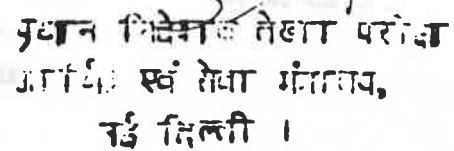 प्रधान निदेशक लेखा परीक्षा
आर्थिक एवं सेवा मंत्रालय,
नई दिल्ली ।